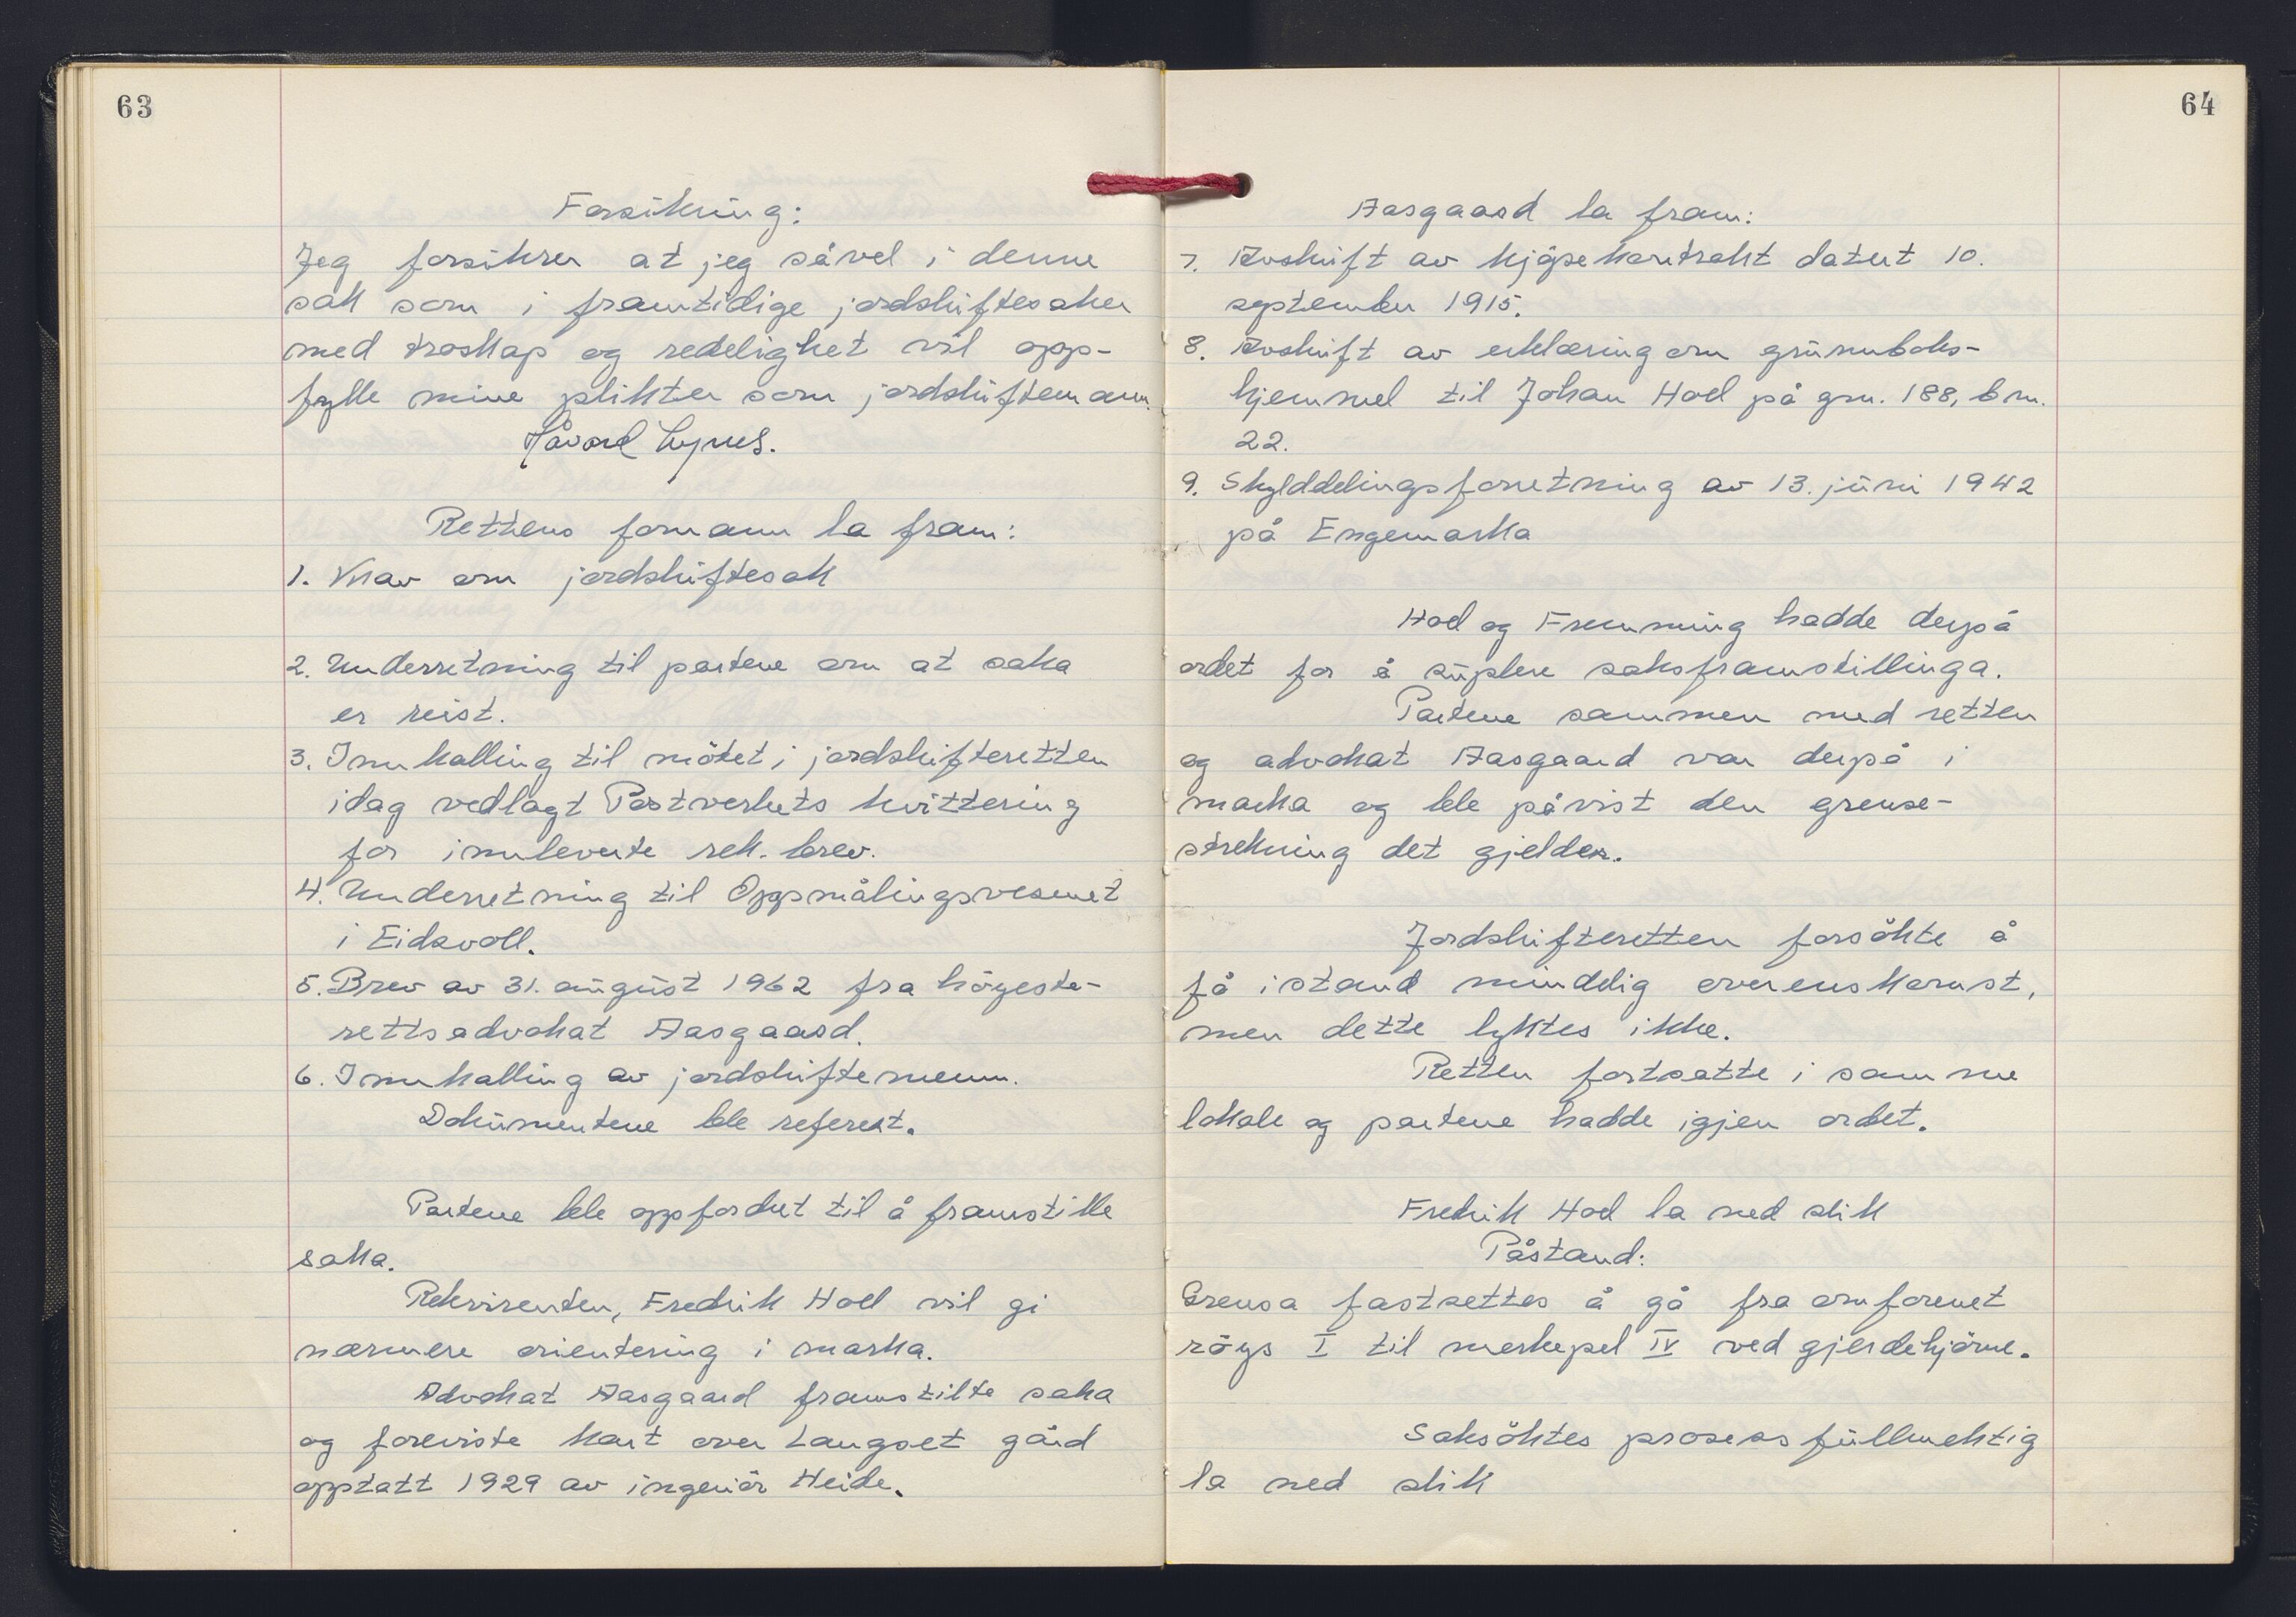 63
Forsikring:
Jeg forsikrer at jeg såvel i denne
sak som i framtidige jordskiftesaker
med troskap og redelighet vil opp-
fylle mine plikter som jordskiftemann.
Håvard
Rettens formann la fram:
1. Krav om jordskiftesak
2. Underretning til partene om at saka
er reist.
3. Innkalling til møtet i jordskifteretten
idag vedlagt Postverkets kvittering
for innleverte rek. brev.
4. Underretning til Oppmålingsvesenet
i Eidsvoll.
5. Brev av 31. august 1962 fra høyeste-
rettsadvokat Aasgaard.
6. Innkalling av jordskiftemenn.
Dokumentene ble referert.
Partene ble oppfordret til å framstille
saka.
Rekvirenten, Fredrik Hoel vil gi
nærmere orientering i marka.
Advokat Aasgaard framstilte saka
og foreviste kart over Langset gård
opptatt 1929 av ingeniør Heide.
64
Aasgaard la fram:
7. Avskrift av kjøpekontrakt datert 10.
september 1915.
8. Avskrift av erklæring om grunnboks-
hjemmel til Johan Hoel på gnr. 188, bnr.
22.
9. Skylddelingsforretning av 13. juni 1942
på Engemarka
Hoel og Fremming hadde derpå
ordet for å suplere saksframstillinga.
Partene sammen med retten
og advokat Aasgaard var derpå i
marka og ble påvist den grense-
strekning det gjelder.
Jordskifteretten forsøkte å
få istand mindelig overenskomst,
men dette lyktes ikke.
Retten fortsatte i samme
lokale og partene hadde igjen ordet.
Fredrik Hoel la ned slik
Påstand:
Grensa fastsettes å gå fra omforenet
røys I til merkepel IV ved gjerdehjørne.
Saksøktes prosessfullmektig
la ned slik